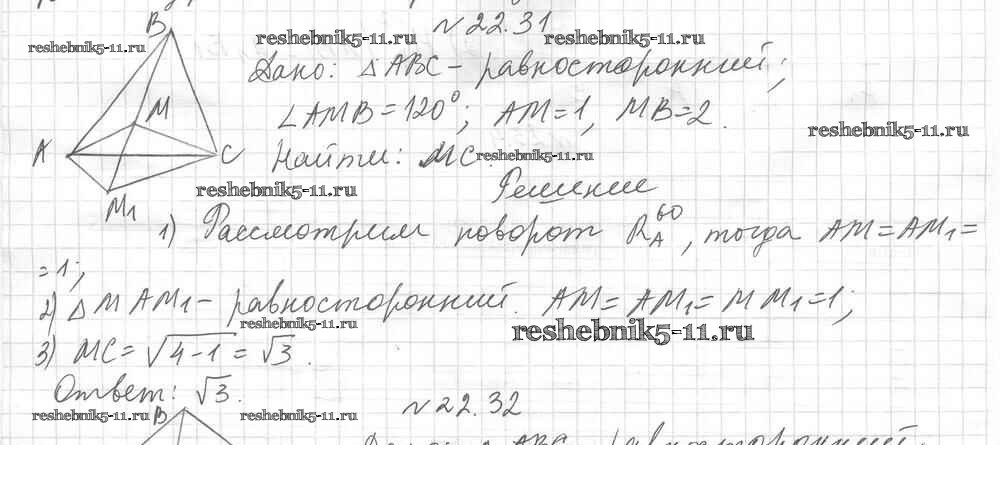 B
N 22.31
reshebnik5-11.ru
reshebnik5-11.ru
reshebnik5-11.ru
Дано: △ABC - равносторонний;
M
∠AMB = 120°; AM = 1, MB = 2.
reshebnik5-11.ru
A
C
Найти: MC.
reshebnik5-11.ru
reshebnik5-11.ru
Решение
M₁
1) Рассмотрим поворот R_A^60, тогда AM = AM₁ =
= 1;
2) △MAM₁ - равносторонний. AM = AM₁ = MM₁ = 1;
reshebnik5-11.ru
reshebnik5-11.ru
3) MC = √4-1 = √3.
Ответ: √3.
reshebnik5-11.ru
B
reshebnik5-11.ru
N 22.32